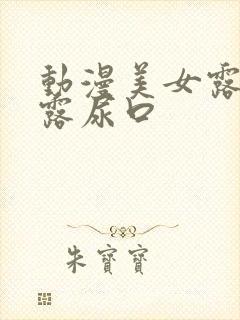 動漫美女露
露尿口
朱寶寶